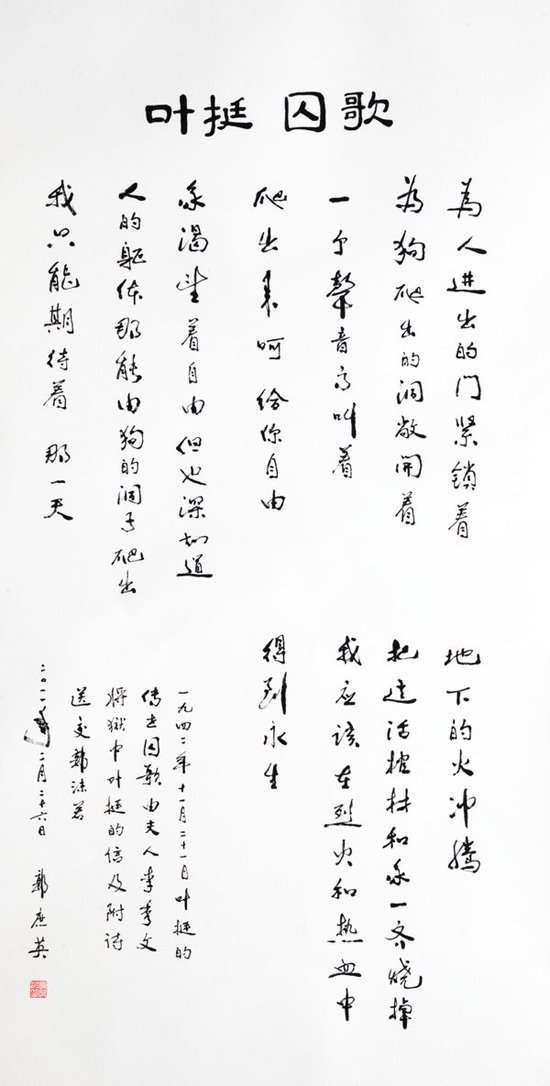 叶挺 囚歌
為人进出的门紧鎖着
為狗爬出的洞敞開着
一个聲音高叫着
爬出来呵给你自由
我渴望着自由但也深知道
人的躯体那能由狗的洞子爬出
我只能期待着 那一天
地下的火冲腾
把这活棺材和我一齐烧掉
我应该在烈火和热血中
得到永生
一九四二年十一月二十一日叶挺的
传世囚歌由夫人李秀文
将狱中叶挺的信及附诗
送交郭沫若
二〇一一年二月二十六日 郭庶英